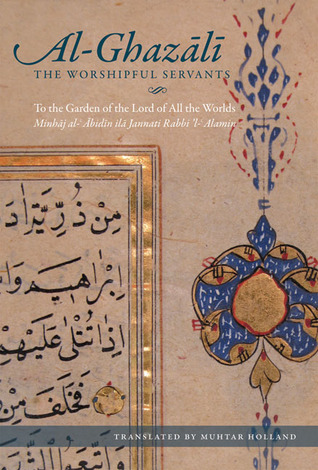 Al-Ghazālī
THE WORSHIPFUL SERVANTS
To the Garden of the Lord of All the Worlds
Minhāj al-ʿĀbidīn ilā Jannati Rabbi ’l-ʿĀlamīn
مِنْ ذُرِّيَّةِ اٰدَ
اِبْرٰهِيمَ وَاِ
اِذَا تُتْلٰى عَلَيْهِمْ
فَخَلَفَ مِنْ
وَاتَّبَعُوا الش
TRANSLATED BY MUHTAR HOLLAND